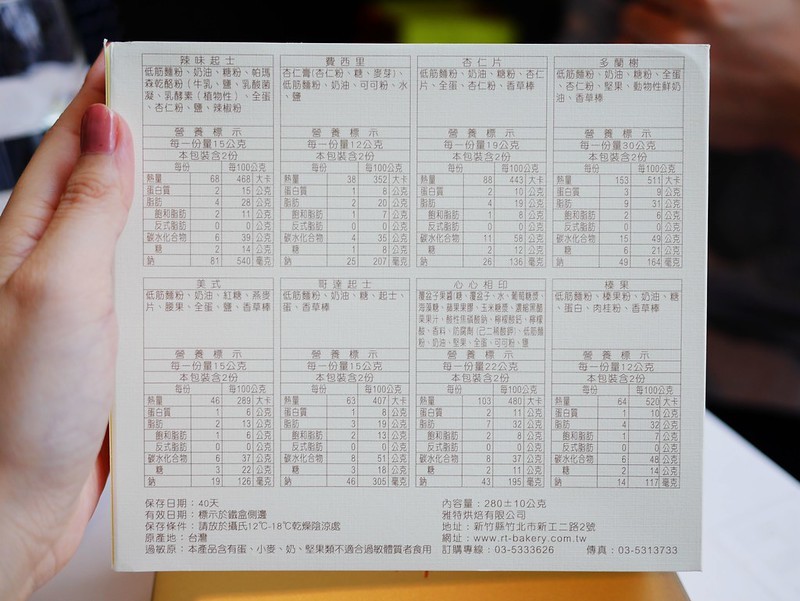 辣味起士
低筋麵粉、奶油、糖粉、帕瑪
森乾酪粉（牛乳、鹽、乳酸菌
凝、乳酵素（植物性）、全蛋
、杏仁粉、鹽、辣椒粉
營養標示
每一份量15公克
本包裝含2份
每份 每100公克
熱量 68 468 大卡
蛋白質 2 15 公克
脂肪 4 28 公克
飽和脂肪 2 11 公克
反式脂肪 0 0 公克
碳水化合物 6 39 公克
糖 2 14 公克
鈉 81 540 毫克
費西里
杏仁膏(杏仁粉、糖、麥芽)、
低筋麵粉、奶油、可可粉、水
、鹽
營養標示
每一份量12公克
本包裝含2份
每份 每100公克
熱量 38 352 大卡
蛋白質 1 8 公克
脂肪 2 20 公克
飽和脂肪 1 7 公克
反式脂肪 0 0 公克
碳水化合物 4 35 公克
糖 1 8 公克
鈉 25 207 毫克
杏仁片
低筋麵粉、奶油、糖、杏仁
片、全蛋、杏仁粉、香草棒
營養標示
每一份量19公克
本包裝含2份
每份 每100公克
熱量 88 443 大卡
蛋白質 2 10 公克
脂肪 4 19 公克
飽和脂肪 1 8 公克
反式脂肪 0 0 公克
碳水化合物 11 58 公克
糖 2 12 公克
鈉 26 136 毫克
多蘭樹
低筋麵粉、奶油、糖粉、全蛋
、杏仁粉、堅果、動物性鮮奶
油、香草棒
營養標示
每一份量30公克
本包裝含2份
每份 每100公克
熱量 153 511 大卡
蛋白質 3 9 公克
脂肪 9 31 公克
飽和脂肪 2 6 公克
反式脂肪 0 0 公克
碳水化合物 15 49 公克
糖 6 21 公克
鈉 49 164 毫克
美式
低筋麵粉、奶油、紅糖、燕麥
片、腰果、全蛋、鹽、香草棒
營養標示
每一份量15公克
本包裝含2份
每份 每100公克
熱量 46 289 大卡
蛋白質 1 6 公克
脂肪 2 13 公克
飽和脂肪 1 6 公克
反式脂肪 0 0 公克
碳水化合物 6 37 公克
糖 3 22 公克
鈉 19 126 毫克
哥達起士
低筋麵粉、奶油、糖、起士、
蛋、香草棒
營養標示
每一份量15公克
本包裝含2份
每份 每100公克
熱量 63 407 大卡
蛋白質 1 8 公克
脂肪 3 19 公克
飽和脂肪 2 13 公克
反式脂肪 0 0 公克
碳水化合物 8 51 公克
糖 3 18 公克
鈉 46 305 毫克
心心相印
覆盆子果醬(糖、覆盆子、水、葡萄糖漿、
海藻糖、蘋果果膠、玉米糖漿、濃縮黑醋
栗果汁、酸性焦磷酸鈉、檸檬酸鈣、檸檬
酸、香料、防腐劑(己二烯酸鉀)、低筋麵
粉、奶油、堅果、全蛋、可可粉、鹽
營養標示
每一份量22公克
本包裝含2份
每份 每100公克
熱量 103 480 大卡
蛋白質 2 11 公克
脂肪 7 32 公克
飽和脂肪 2 8 公克
反式脂肪 0 0 公克
碳水化合物 8 37 公克
糖 2 11 公克
鈉 43 195 毫克
榛果
低筋麵粉、榛果粉、奶油、糖
、蛋白、肉桂粉、香草棒
營養標示
每一份量12公克
本包裝含2份
每份 每100公克
熱量 64 520 大卡
蛋白質 1 10 公克
脂肪 4 32 公克
飽和脂肪 1 7 公克
反式脂肪 0 0 公克
碳水化合物 6 48 公克
糖 2 14 公克
鈉 14 117 毫克
保存日期：40天
有效日期：標示於鐵盒側邊
保存條件：請放於攝氏12℃-18℃乾燥陰涼處
原產地：台灣
過敏原：本產品含有蛋、小麥、奶、堅果類不適合過敏體質者食用
內容量：280±10公克
雅特烘焙有限公司
地址：新竹縣竹北市新工二路2號
網址：www.rt-bakery.com.tw
訂購專線：03-5333626 傳真：03-5313733